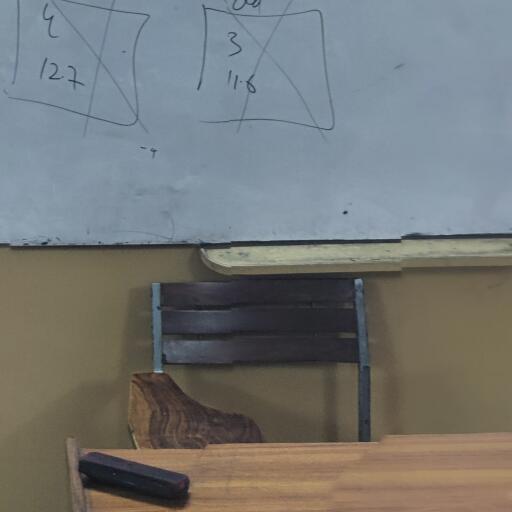 4
12.7
3
11.6